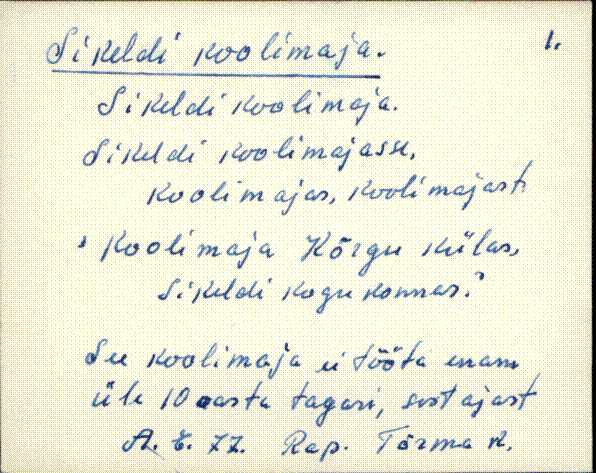 Sikeldi koolimaja. 1.
Sikeldi koolimaja.
Sikeldi koolimajasse,
koolimajas, koolimajast.
Koolimaja Kõrgu külas,
Sikeldi kogukonnas.
See koolimaja ei tööta enam
üle 10 aasta tagasi, sest ajast
Rap. Tõrma k.